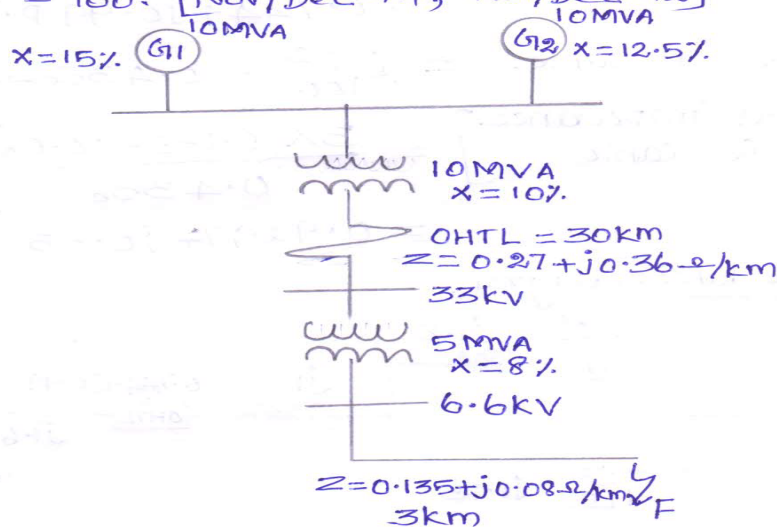 100. [Nov/Dec
10MVA 10MVA
X=15%. G1 G2 X=12.5%.
10MVA
X=10%.
OHTL = 30km
Z=0.27+j0.36Ω/km
33kV
5MVA
X=8%.
6.6kV
Z=0.135+j0.08Ω/km
F
3km